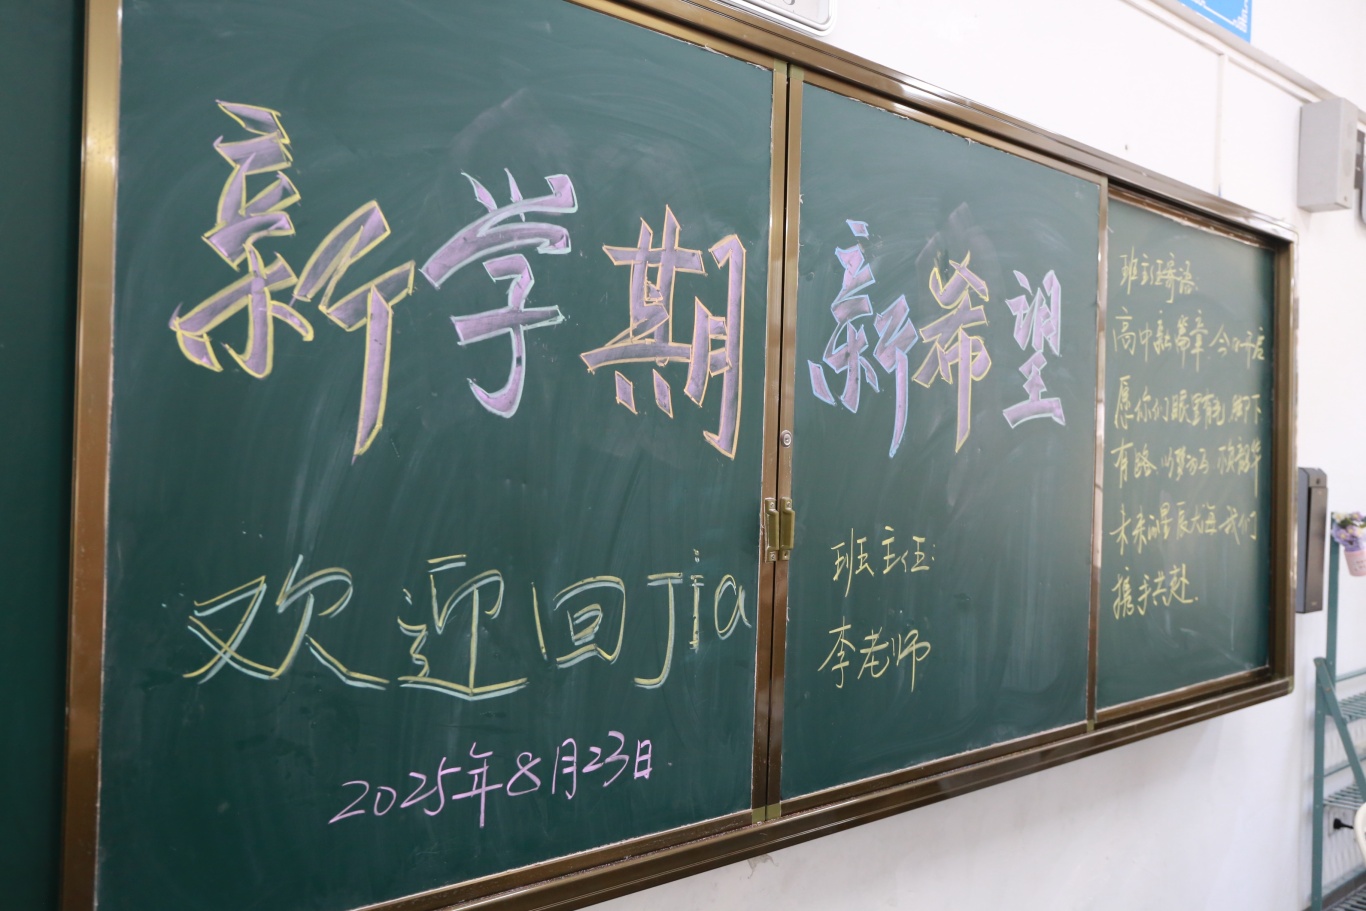 新学期
欢迎回Jia
2025年8月23日
新希望
班主任:
李老师
班主任寄语:
高中新篇章,今日开启
愿你们眼里有光,脚下
有路,以梦为马,不负韶华
未来的星辰大海,我们
携手共赴.